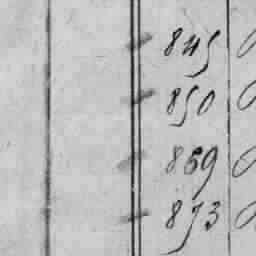 845
850
869
873